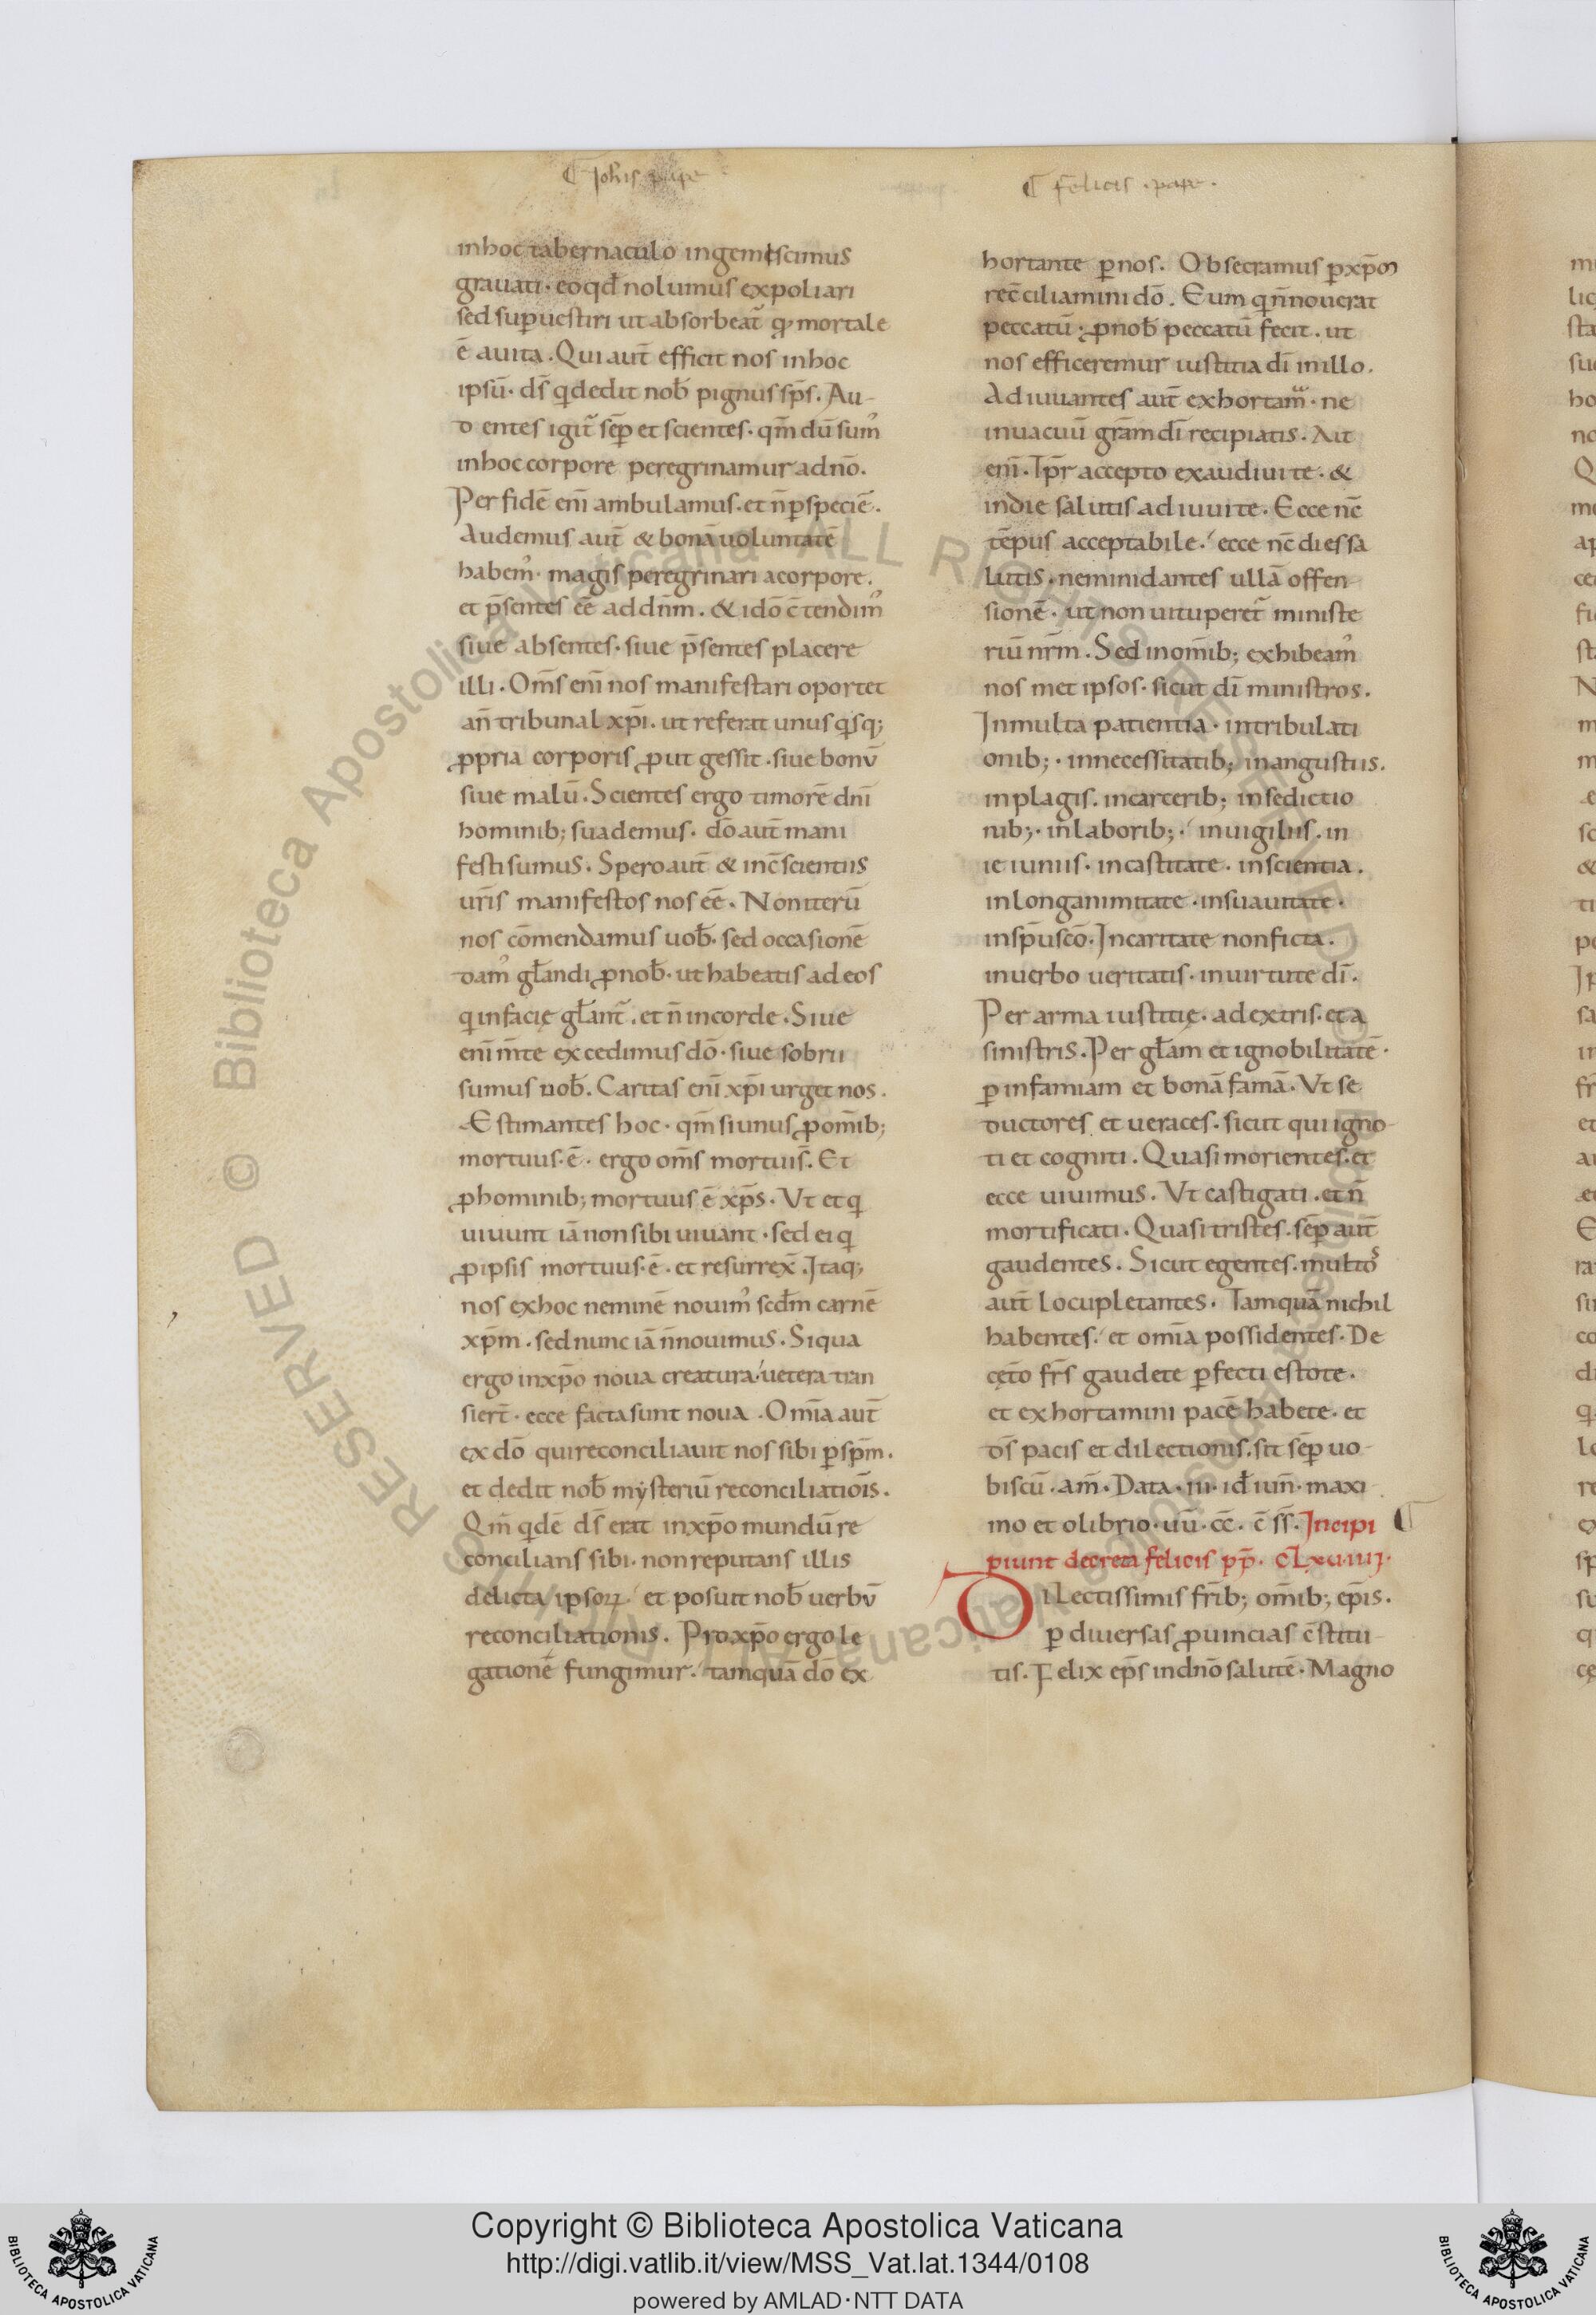 ¶ Joh̄is pape
inhoc tabernaculo ingemescimus
grauati · eoqđ nolumus expoliari
sed suꝑuestiri ut absorbeat̃ q, mortale
ē auita . Qui aut̄ efficit nos inhoc
ipsū · ds̄ qdedit nob̄ pignus sps̄ . Au-
d entes igit̃ sēp et scientes · qm̄ dū sumꝰ
inhoc corpore peregrinamur adnō .
Per fidē enī ambulamus · et n̄ ꝑspeciē .
Audemus aut̄ & bonā uoluntatē
habemꝰ · magis peregrinari acorpore .
et p̄sentes eē ad dn̄m . & idō c̄tendimꝰ
siue absentes · siue p̄sentes placere
illi . Om̄s enī nos manifestari oportet
an̄ tribunal xp̄i . ut referat unus qsq;
ꝓpria corporis ꝓut gessit · siue bonū
siue malū . Scientes ergo timorē dnī
hominib; suademus · dō aut̄ mani
festi sumus . Spero aut̄ & inc̄scientiis
ur̄is manifestos nos eē . Non iterū
nos cōmendamus uob̄ · sed occasionē
damꝰ gl̄andi ꝓnob̄ · ut habeatis ad eos
qinfacię gl̄ant̃ . et n̄ incorde . Siue
enī m̄te excedimus dō · siue sobrii
sumus uob̄ . Caritas enī xp̄i urget nos .
Æstimantes hoc · qm̄ siunus ꝓom̄ib;
mortuus · ē · ergo om̄s mortui s̄ . Et
ꝓhominib; mortuus ē xp̄s . Vt et q
uiuunt iā non sibi uiuant · sed ei q
ꝓipsis mortuus · ē · et resurrex̄ . Itaq;
nos exhoc neminē nouimꝰ scdm̄ carnē
xp̄m . sed nunc iā n̄nouimus . Siqua
ergo inxp̄o noua creatura · uetera tran
siert̄ · ecce facta sunt noua . Om̄ia aut̄
ex dō qui reconciliauit nos sibi ꝑ xp̄m .
et dedit nob̄ mysteriū reconciliatiōis .
Qm̄ qdē ds̄ erat inxp̄o mundū re
concilians sibi · non reputans illis
delicta ipsoꝝ · et posuit nob̄ uerbū
reconciliationis . Pro xp̄o ergo le
gationē fungimur · tamquā dō ex
¶ felicis · pape ·
hortante ꝑnos . Obsecramus ꝑxp̄om
rec̄ciliamini dō . Eum q n̄nouerat
peccatū · ꝓnob̄ peccatū fecit . ut
nos efficeremur iustitia dī inillo .
Adiuuantes aut̄ exhortam̃ · ne
inuacuū gr̄am dī recipiatis . Ait
enī · Tp̄r accepto exaudiui te · &
indie salutis adiuui te . Ecce nc̄
tēpus acceptabile · ecce nc̄ dies sa
lutis · nemini dantes ullā offen
sionē · ut non uituperet̃ ministe
riū nr̄m . Sed inom̄ib; exhibeamꝰ
nos met ipsos · sicut dī ministros .
Inmulta patientia · intribulati
onib; · innecessitatib; inangustiis .
inplagis . incarcerib; insedictio
nib; · inlaborib; · inuigiliis . in
ieiuniis · incastitate · inscientia .
inlonganimitate · insuauitate ·
insp̄u sc̄o . Incaritate nonficta .
inuerbo ueritatis · inuirtute dī .
Per arma iustitię · adextris · et a
sinistris . Per gl̄am et ignobilitatē ·
ꝑ infamiam et bonā famā . Vt se
ductores et ueraces . sicut qui igno-
ti et cogniti . Quasi morientes · et
ecce uiuimus . Vt castigati . et n̄
mortificati . Quasi tristes . sēp aut̄
gaudentes . Sicut egentes . multos
aut̄ locupletantes . Tamquā nichil
habentes · et om̄ia possidentes . De
cęto fr̄s gaudete ꝑfecti estote .
et exhortamini pacē habete · et
ds̄ pacis et dilectionis . sit sēp uo-
biscū . am̄ . Data · iii · id iun̄ · maxi
mo et olibrio · uū · cc̄ · c̄ ss̄ · Incipi
piunt decreta felicis pp̄ · cLxuiiij ·
Dilectissimis fr̄ib; om̄ib; ep̄is .
ꝑ diuersas ꝓuincias c̄stitu
tis . Felix ep̄s indnō salutē . Magno
Copyright © Biblioteca Apostolica Vaticana
http://digi.vatlib.it/view/MSS_Vat.lat.1344/0108
powered by AMLAD·NTT DATA